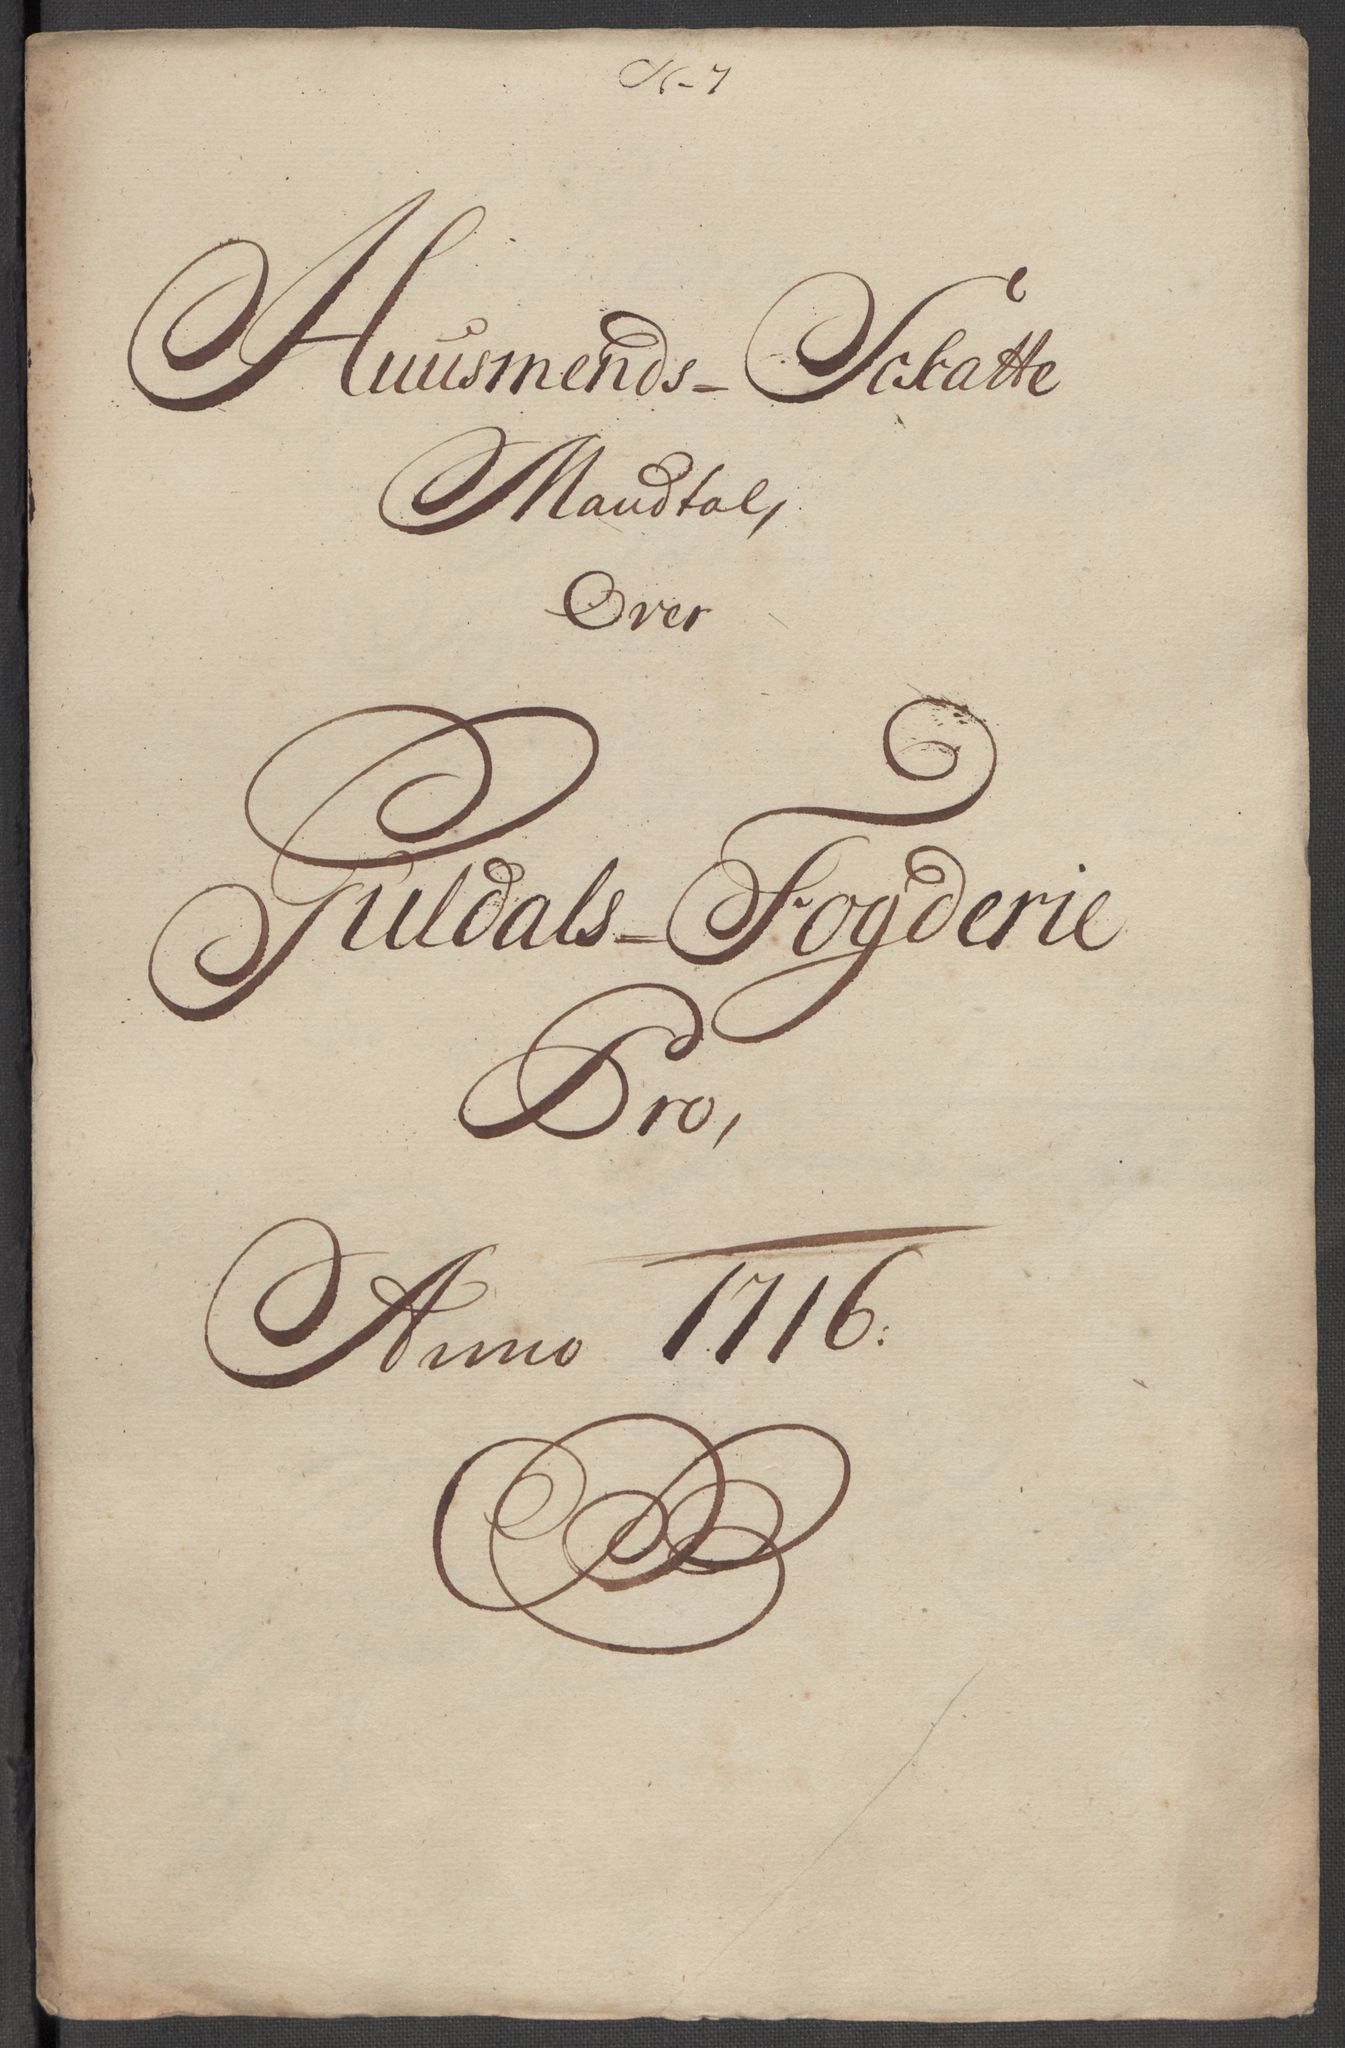 N-7
Huusmends-Schatte
Mandtal,
Over
Guldals-Fogderie
Pro,
Anno 1716.